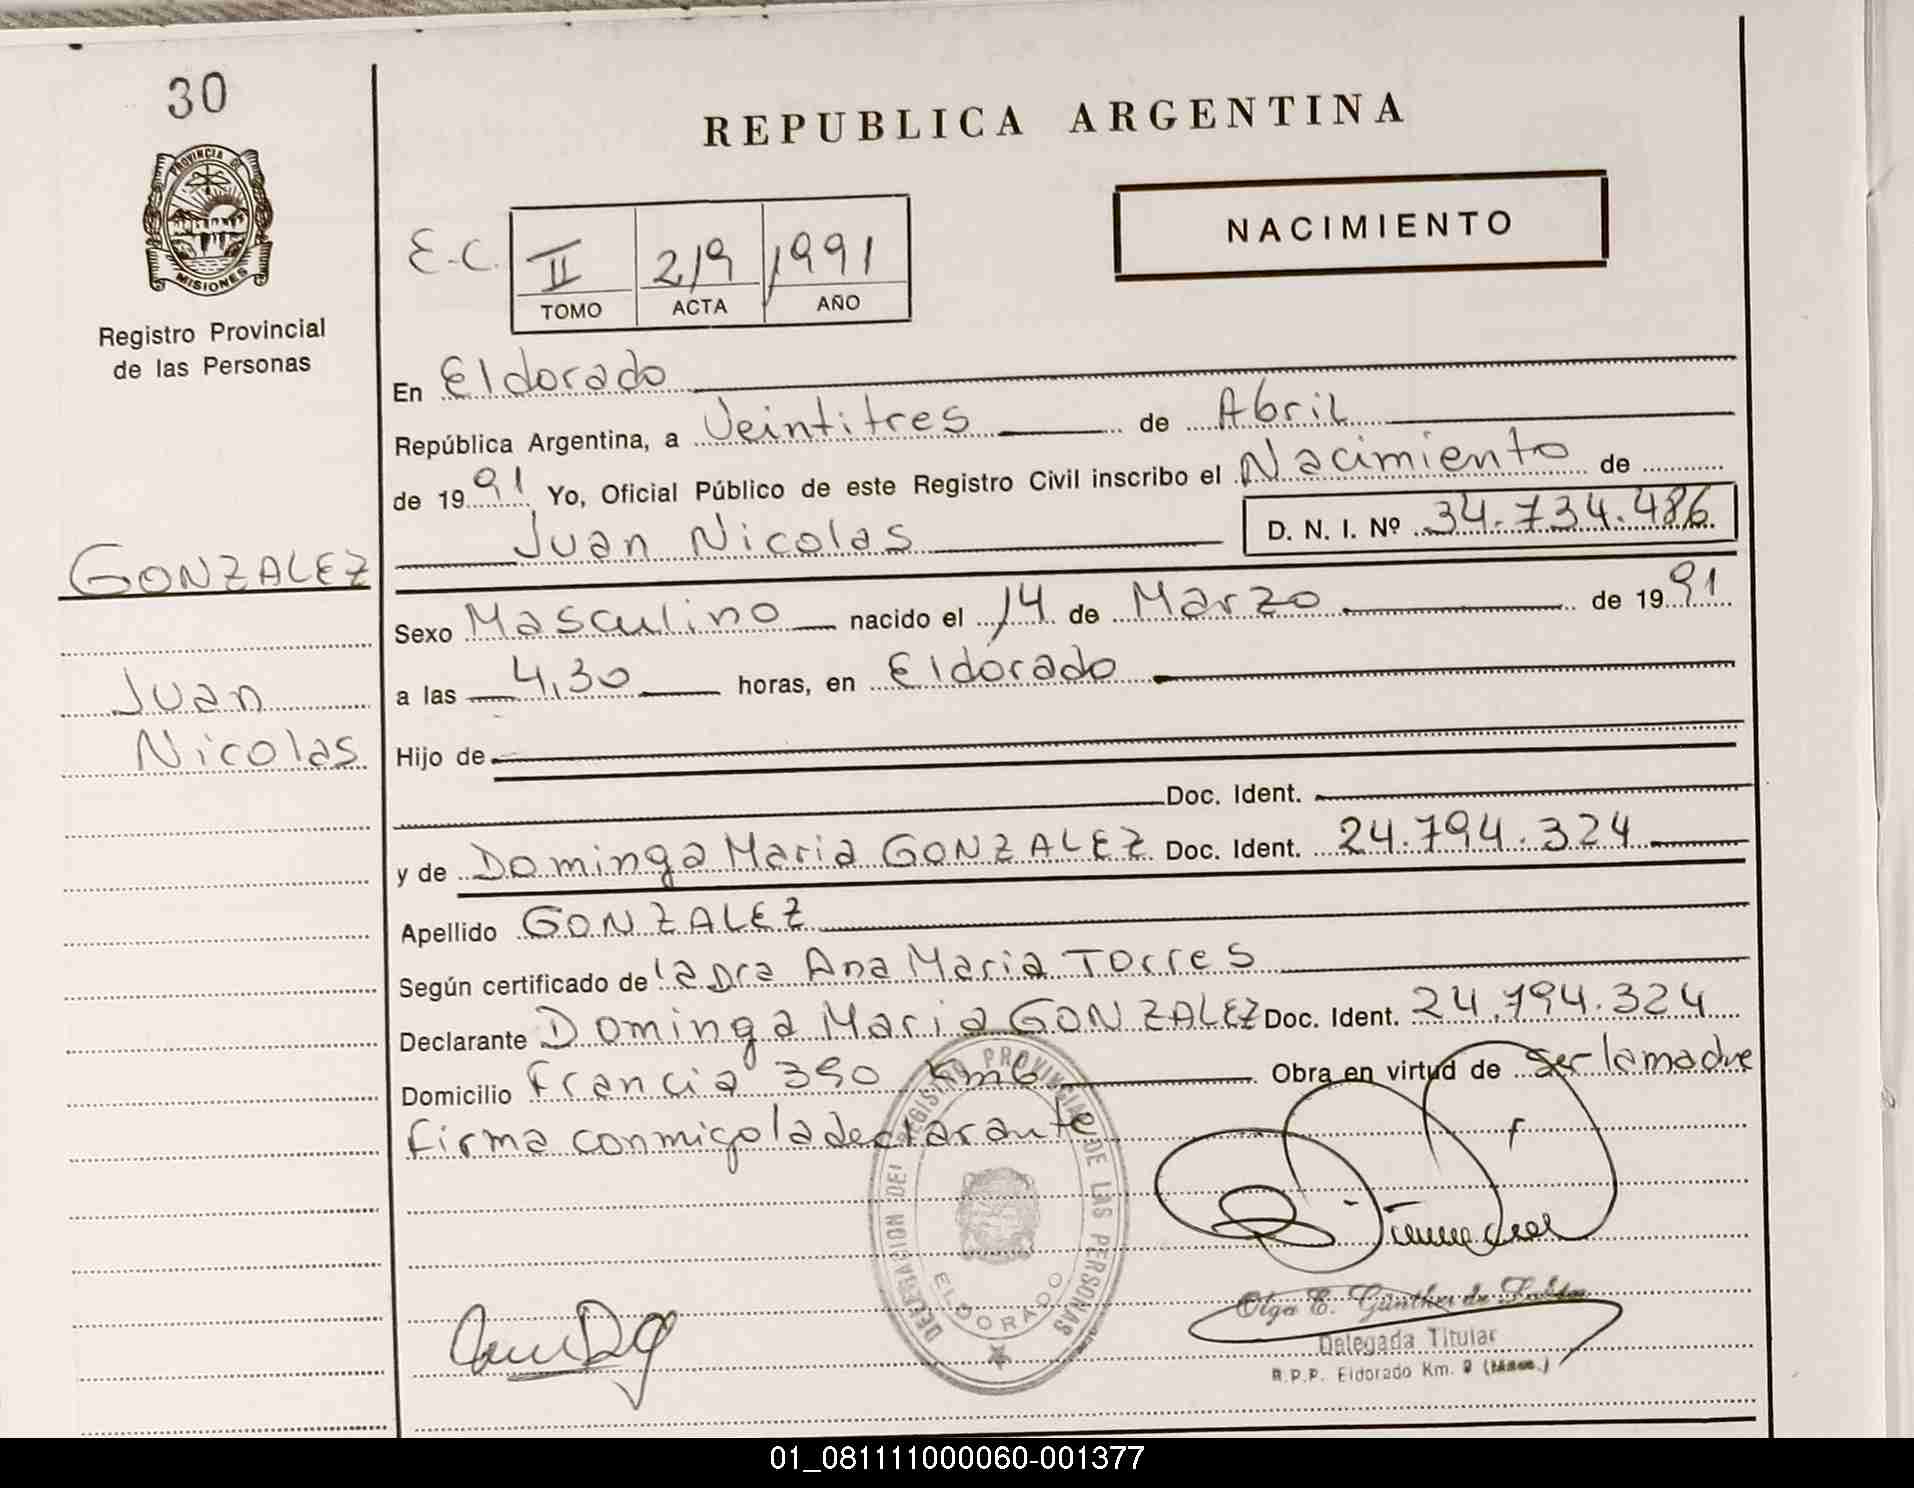 30
PROVINCIA DE
MISIONES
Registro Provincial
de las Personas
GONZALEZ
Juan
Nicolas
REPUBLICA ARGENTINA
E.C.
II 219 1991
TOMO ACTA AÑO
NACIMIENTO
En Eldorado
República Argentina, a Veintitres de Abril
de 1991 Yo, Oficial Público de este Registro Civil inscribo el Nacimiento de
Juan Nicolas D. N. I. Nº 34.734.486
Sexo Masculino nacido el 14 de Marzo de 1991
a las 4,30 horas, en Eldorado
Hijo de
Doc. Ident.
y de Dominga Maria GONZALEZ Doc. Ident. 24.794.324
Apellido GONZALEZ
Según certificado de la Dra Ana Maria Torres
Declarante Dominga Maria GONZALEZ Doc. Ident. 24.794.324
Domicilio Francia 390 Km6 Obra en virtud de ser la madre
firma conmigo la declarante
DELEGACION DEL REGISTRO PROVINCIAL DE LAS PERSONAS
ELDORADO
Olga E. Günther de
Delegada Titular
R.P.P. Eldorado Km. 9
01_081111000060-001377